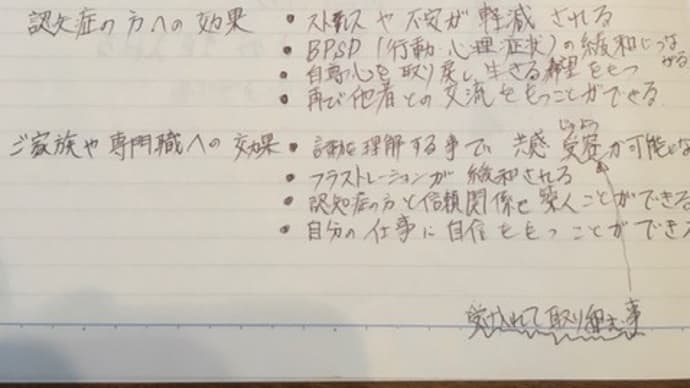 認知症の方への効果 • ストレスや不安が軽減される
• BPSD(行動・心理症状)の緩和につながる
• 自尊心を取り戻し、生きる希望をもつ
• 再び他者との交流をもつことができる
じゅよう
ご家族や専門職への効果 • 言動を理解する事で共感 受容が可能にな
• フラストレーションが緩和される
• 認知症の方と信頼関係を築くことができる
• 自分の仕事に自信をもつことができ
受け入れて取り組む事